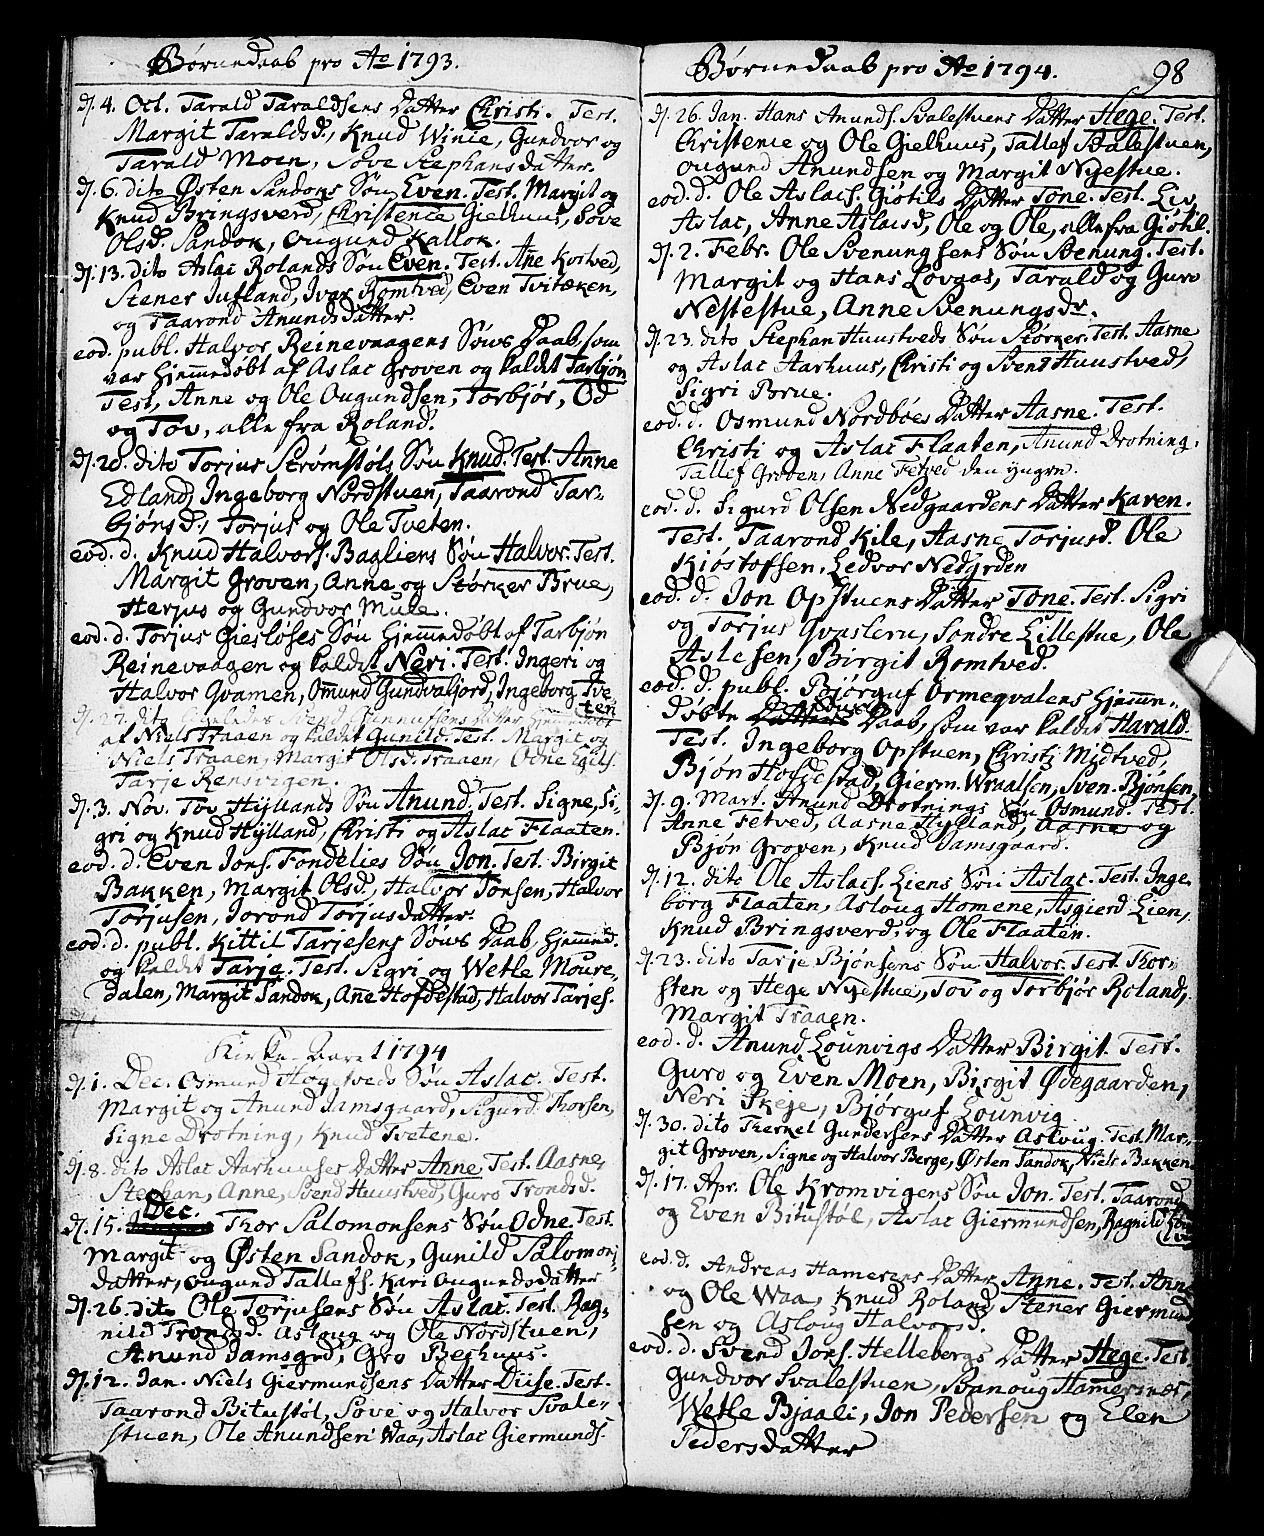 Børnedaab pro Ao 1793.
d. 4. Oct. Tarald Taraldsens Datter Christi. Test.
Margit Taralds d., Knud Winie, Gundvor og
Tarald Moen, Søve Stephansdatter.
d. 6. dito Østen Sandoks Søn Even. Test. Margit og
Knud Bringsverd, Christence Gielhuus, Søve
Olsd. Sandok, Ougund Kallok.
d. 13. dito Aslac Rolands Søn Even. Test. Ane Kostved,
Stener Jufland, Ivar Romtved, Even Tvitæken,
og Taarond Anundsdatter.
eod. publ. Halvor Reinevaagens Søns Daab, som
var hiemmedøbt af Aslac Groven og kaldet Tarbjøn
Test, Anne og Ole Ougundsen, Torbjør, Od
og Tov, alle fra Roland.
d. 20. dito Torjus Strømstøls Søn Knud. Test. Anne
Edland, Ingeborg Nordstuen, Taarond Tar-
bjønsd., Torjus og Ole Tveten.
eod. d. Knud Halvors. Bagliens Søn Halvor. Test.
Margit Groven, Anne og Størker Brue,
Herjus og Gundvor Mule.
eod. d. Torjus Giesløses Søn hiemmedøbt af Tarbjøn
Reinevaagen og kaldet Neri. Test. Ingeri og
Halvor Qvamen, Omund Gundvaljord, Ingeborg Tve
ten
d. 27. dito Svend Gunnufsens datter hiemmedøbt
af Niels Traaen og kaldet Gunild. Test. Margit og
Niels Traaen, Margit Olsd. Traaen, Odne Egils.
Tarje Rensvigen.
d. 3. Nov. Tov Hyllands Søn Anund. Test. Signe, Si-
gri og Knud Hylland, Christi og Aslac Flaaten.
eod. d. Even Jons. Fondelies Søn Jon. Test. Birgit
Bakken, Margit Olsd., Halvor Jonsen, Halvor
Torjusen, Jorond Torjusdatter.
eod. d. publ. Kittil Tarjesens Søns Daab, hiemmed.
og kaldet Tarje. Test. Sigri og Wetle Moure-
dalen, Margit Sandok, Ane Hofdestad, Halvor Tarjes.
Kirke-Aaret 1794
d. 1. Dec. Osmund Høgetveds Søn Aslac. Test.
Margit og Anund Jamsgaard, Sigurd Thorsen,
Signe Drotning, Knud Tvetene.
d. 8. dito Aslac Aarhuuses Datter Anne Test. Aasne,
Stephan, Anne, Svend Huustved, Guro Tronds d.
Dec.
d. 15. Thor Salomonsens Søn Odne. Test.
Margit og Østen Sandok, Gunild Salomons
datter, Ougund Tallefs. Kari Ougundsdatter
d. 26. dito Ole Torjusens Søn Aslac. Test. Rag-
nild Tronds d. Asloug og Ole Nordstuen,
Anund Jamsgrd, Gro Bechuus.
d. 12. Jan. Niels Giermundsens Datter Duse. Test.
Taarond Bitustøl, Søve og Halvor Svale-
stuen, Ole Anundsen Waa, Aslac Giermunds.
Børnedaab pro Ao 1794. 98
d. 26. Jan. Hans Anunds. Svalestuens Datter Hege. Test.
Christence og Ole Gielhuus, Tallef Svalestuen,
Ougund Anundsen og Margit Nyestue.
eod. d. Ole Aslacs. Giøtils Datter Tone. Test. Liv
Aslac, Anne Aslacsd, Ole og Ole, alle fra Giøtil.
d. 2. Febr. Ole Svenungsens Søn Svenung. Test.
Margit og Hans Løvgas, Tarald og Guro
Nestestue, Anne Svenungs dr.
d. 23. dito Stephan Huustveds Søn Størker. Test. Aasne
og Aslac Aarhuus, Christi og Svend Huustved,
Sigri Brue.
eod. d. Osmund Nordbøes Datter Aasne. Test.
Christi og Aslac Flaaten, Anund Drotning,
Tallef Groven, Anne Fetved den yngre.
eod. d. Sigurd Olsen Nedgaardens Datter Karen.
Test. Taarond Kile, Aasne Torjusd. Ole
Kiøstolfsen, Ledvor Nedgrden
eod. d. Jon Opstuens Datter Tone. Test. Sigri
og Torjus Qvaslern, Sondre Lillestue, Ole
Aslesen, Birgit Romtved.
eod. d. publ. Bjørguf Ormeqvalens hiemme-
døbte Datters Daab, som var kaldet Harald.
Test. Ingeborg Opstuen, Christi Midtved,
Bjøn Hofdestad, Gierm. Wraalsen, Sven. Bjønsen,
d. 9. Mart. Anund Drotnings Søn Osmund. Test.
Anne Fetved, Aasne Hylland, Aasne og
Bjøn Groven, Knud Jamsgaard.
d. 12. dito Ole Aslacs. Liens Søn Aslac. Test. Inge-
borg Flaaten, Asloug Homene, Asgierd Lien,
Knud Bringsverd, og Ole Flaaten.
d. 23. dito Tarje Bjønsens Søn Halvor. Test. Thor-
sten og Hege Nyestue, Tov og Torbjør Roland,
Margit Traaen.
eod. d. Anund Lounvigs Datter Birgit. Test.
Guro og Even Moen, Birgit Ødegaarden,
Neri Skeje, Bjørguf Lounvig
d. 30. dito Therkel Gundersens Datter Asloug. Test. Mar-
git Groven, Signe og Halvor Berge, Østen Sandok, Niels Bakken
d. 17. Apr. Ole Kromvigens Søn Jon. Test. Taarond
og Even Bitustøl, Aslac Giermundsen, Ragnild
eod. d. Andreas Hamerens Datter Anne. Test. Anne
og Ole Waa, Knud Roland, Stener Giermund
sen og Asloug Halvorsd.
eod. d. Svend Jons. Hellebergs Datter Hege. Test.
Gundvor Svalestuen, Svanoug Hamersnes,
Wetle Bjaali, Jon Pedersen og Elen
Pedersdatter